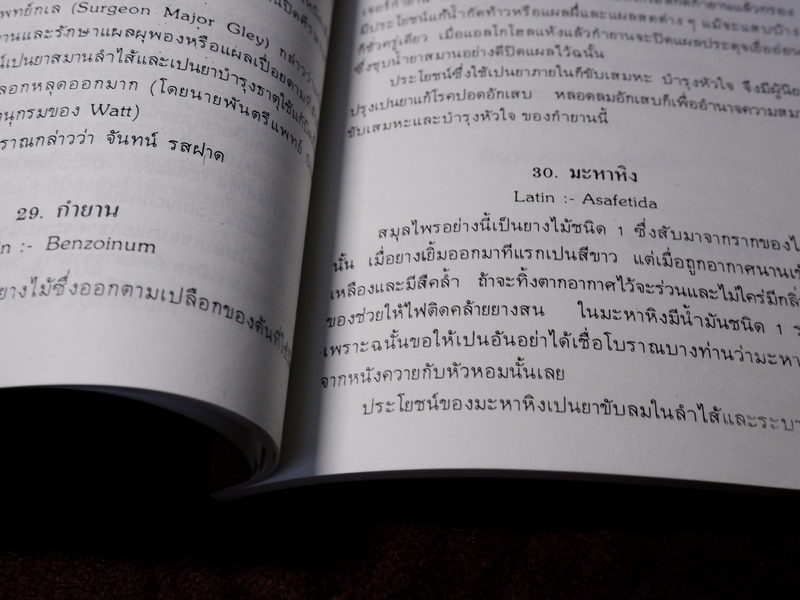 พทย์กเล (Surgeon Major Gley) กล่าวว่า
านและรักษาแผลผุพองหรือแผลเปื่อยตามที่
น์เปนยาสมานลำไส้และเปนยาบำรุงธาตุใช้แก้
ลอกหลุดออกมาก (โดยนายพันตรีแพทย์
นุกรมของ Watt)
ราณกล่าวว่า จันทน์ รสฝาด
29. กำยาน
n :- Benzoinum
ยางไม้ซึ่งออกตามเปลือกของต้นที่
มีประโยชน์แก้น้ำกัดท้าวหรือแผลผีและแผลสดต่าง ๆ แม้จะแสบบ้าง
ก็ชั่วครู่เดียว เมื่อแอลโกโฮลแห้งแล้วกำยานจะปิดแผลประดุจเยื่ออ่อน
ซึ่งชุบน้ำยาสมานอย่างดีปิดแผลไว้ฉนั้น
ประโยชน์ซึ่งใช้เปนยาภายในก็ขับเสมหะ บำรุงหัวใจ จึงมีผู้นิย
ปรุงเปนยาแก้โรคปอดอักเสบ หลอดลมอักเสบก็เพื่ออำนาจความสม
ขับเสมหะและบำรุงหัวใจ ของกำยานนี้
30. มะหาหิง
Latin :- Asafetida
สมุลไพรอย่างนี้เป็นยางไม้ชนิด 1 ซึ่งสับมาจากรากของไ
นั้น เมื่อยางเยิ้มออกมาทีแรกเปนสีขาว แต่เมื่อถูกอากาศนานเข้
เหลืองและมีสีคล้ำ ถ้าจะทิ้งตากอากาศไว้จะร่วนและไม่ใคร่มีกลิ่
ของช่วยให้ไฟติดคล้ายยางสน ในมะหาหิงมีน้ำมันชนิด 1 ร
เพราะฉนั้นขอให้เปนอันอย่าได้เชื่อโบราณบางท่านว่ามะหา
จากหนังควายกับหัวหอมนั้นเลย
ประโยชน์ของมะหาหิงเปนยาขับลมในลำไส้และระบา